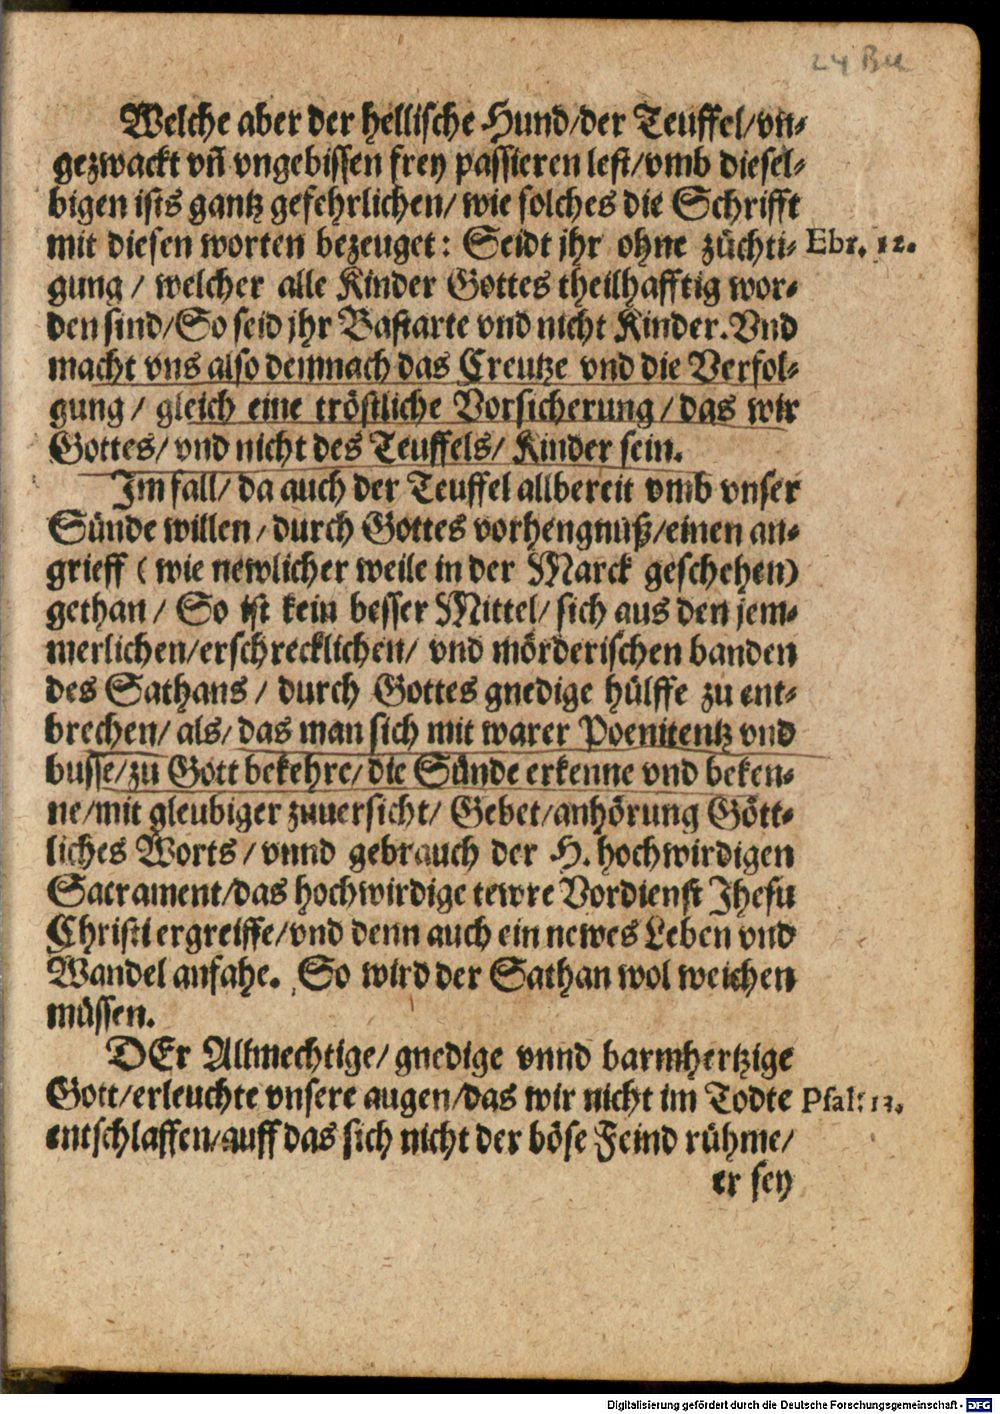 24 Bll
Welche aber der hellische Hund/der Teuffel/vn-
gezwackt vñ vngebissen frey passieren lest/vmb diesel-
bigen ists gantz gefehrlichen/ wie solches die Schrifft
mit diesen worten bezeuget: Seidt jhr ohne züchti- Ebr. 12.
gung / welcher alle Kinder Gottes theilhafftig wor-
den sind/So seid jhr Bastarte vnd nicht Kinder. Vnd
macht vns also demnach das Creutze vnd die Verfol-
gung / gleich eine tröstliche Vorsicherung / das wir
Gottes/ vnd nicht des Teuffels/ Kinder sein.
Im fall/ da auch der Teuffel allbereit vmb vnser
Sünde willen / durch Gottes vorhengnuß/einen an-
grieff ( wie newlicher weile in der Marck geschehen)
gethan / So ist kein besser Mittel/ sich aus den jem-
merlichen/erschrecklichen/ vnd mörderischen banden
des Sathans / durch Gottes gnedige hülffe zu ent-
brechen/ als/ das man sich mit warer Poenitentz vnd
busse/zu Gott bekehre/die Sünde erkenne vnd beken-
ne/mit gleubiger zuuersicht/ Gebet/anhörung Gött-
liches Worts / vnnd gebrauch der H. hochwirdigen
Sacrament/das hochwirdige tewre Vordienst Jhesu
Christi ergreiffe/vnd denn auch ein newes Leben vnd
Wandel anfahe. So wird der Sathan wol weichen
müssen.
DEr Allmechtige/ gnedige vnnd barmhertzige
Gott/erleuchte vnsere augen/das wir nicht im Todte Psal: 13.
entschlaffen/auff das sich nicht der böse Feind rühme/
er sey
Digitalisierung gefördert durch die Deutsche Forschungsgemeinschaft - DFG